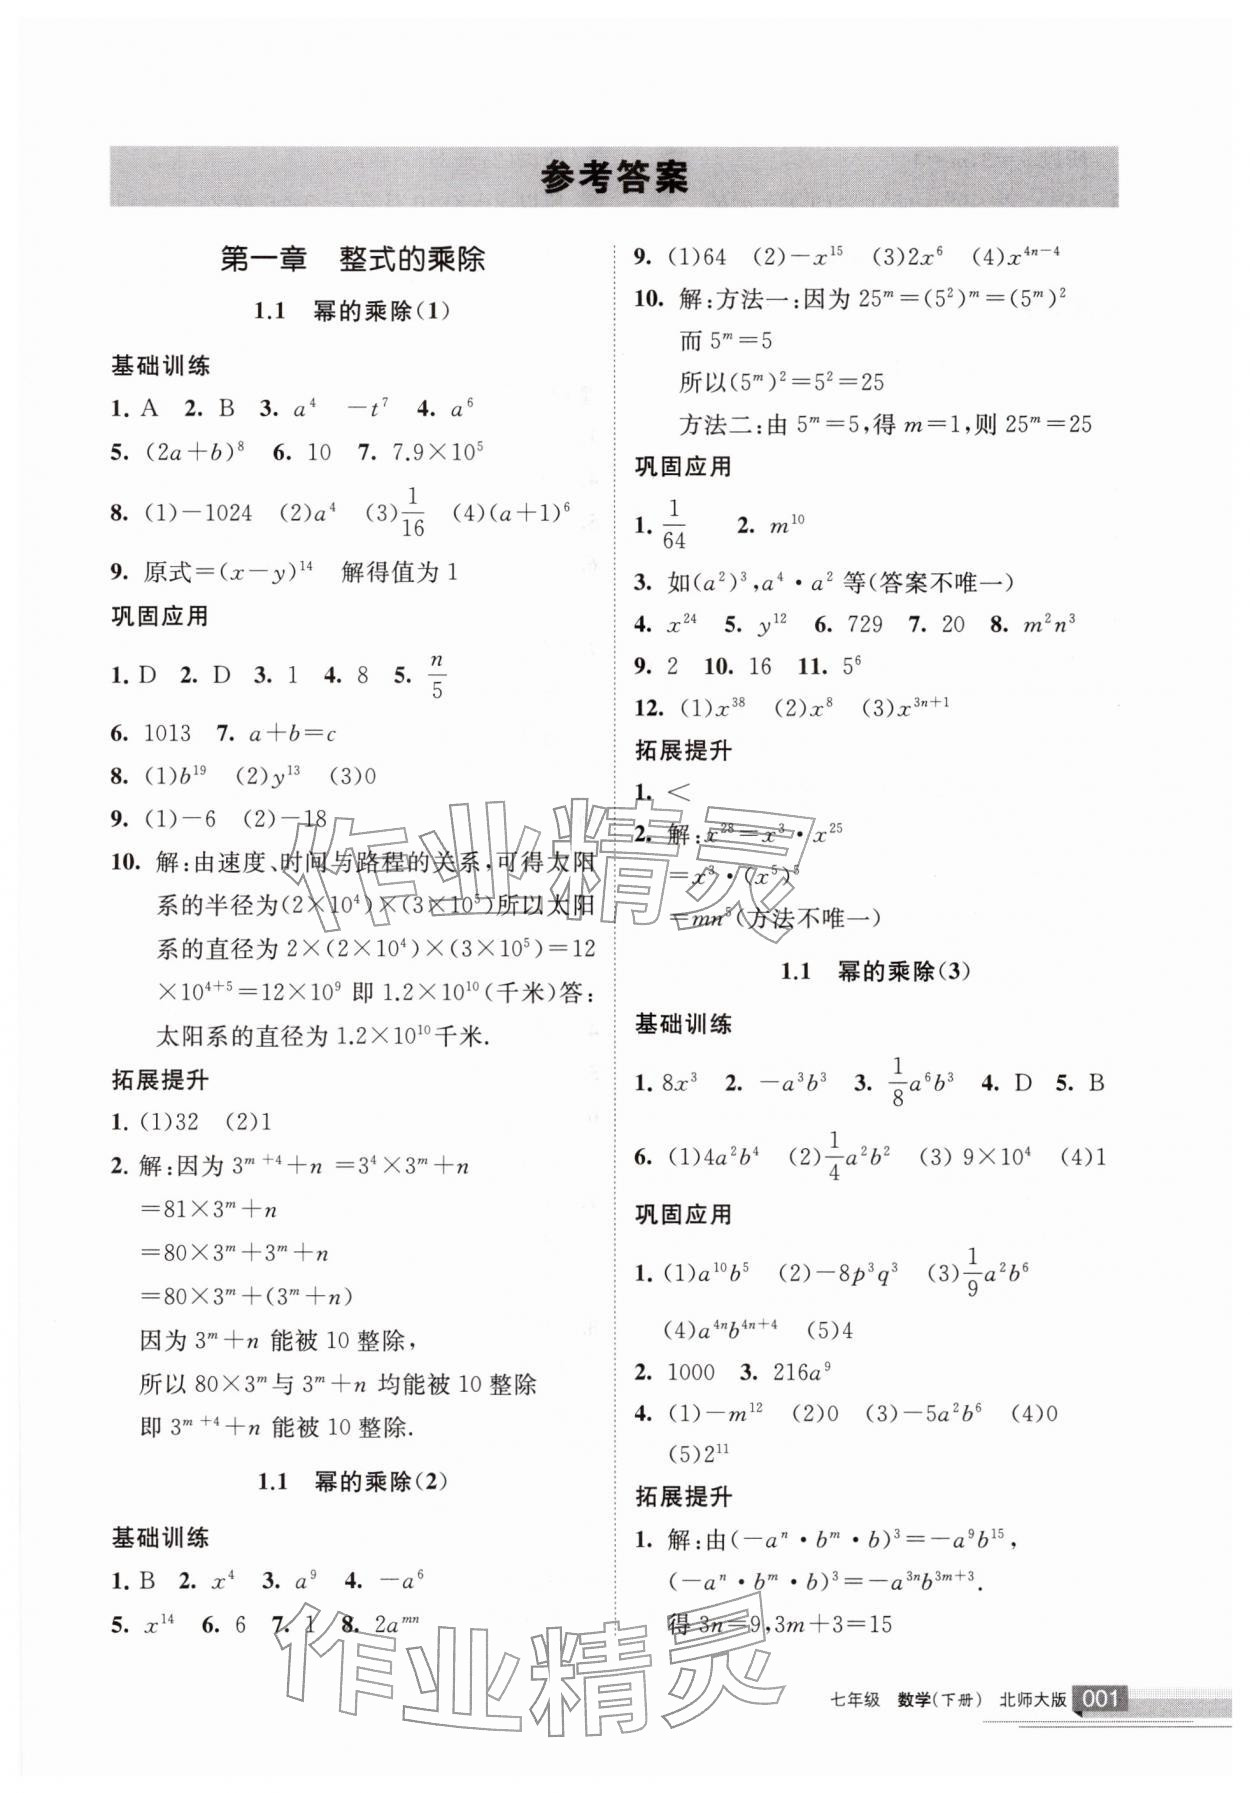 参考答案
第一章 整式的乘除
1.1 幂的乘除(1)
基础训练
1. A 2. B 3. a⁴ －t⁷ 4. a⁶
5. (2a＋b)⁸ 6. 10 7. 7.9×10⁵
8. (1)－1024 (2)a⁴ (3)1/16 (4)(a＋1)⁶
9. 原式＝(x－y)¹⁴ 解得值为1
巩固应用
1. D 2. D 3. 1 4. 8 5. n/5
6. 1013 7. a＋b＝c
8. (1)b¹⁹ (2)y¹³ (3)0
9. (1)－6 (2)－18
10. 解:由速度、时间与路程的关系,可得太阳
系的半径为(2×10⁴)×(3×10⁵)所以太阳
系的直径为2×(2×10⁴)×(3×10⁵)＝12
×10⁴⁺⁵＝12×10⁹ 即1.2×10¹⁰(千米)答:
太阳系的直径为1.2×10¹⁰千米.
拓展提升
1. (1)32 (2)1
2. 解:因为 3^{m+4}＋n ＝3⁴×3^m＋n
＝81×3^m＋n
＝80×3^m＋3^m＋n
＝80×3^m＋(3^m＋n)
因为 3^m＋n 能被 10 整除,
所以 80×3^m 与 3^m＋n 均能被 10 整除
即 3^{m+4}＋n 能被 10 整除.
1.1 幂的乘除(2)
基础训练
1. B 2. x⁴ 3. a⁹ 4. －a⁶
5. x¹⁴ 6. 6 7. 1 8. 2a^{mn}
9. (1)64 (2)－x¹⁵ (3)2x⁶ (4)x^{4n－4}
10. 解:方法一:因为 25^m＝(5²)^m＝(5^m)²
而 5^m＝5
所以(5^m)²＝5²＝25
方法二:由 5^m＝5,得 m＝1,则 25^m＝25
巩固应用
1. 1/64 2. m¹⁰
3. 如(a²)³,a⁴·a² 等(答案不唯一)
4. x²⁴ 5. y¹² 6. 729 7. 20 8. m²n³
9. 2 10. 16 11. 5⁶
12. (1)x³⁸ (2)x⁸ (3)x^{3n＋1}
拓展提升
1. ＜
2. 解:x²⁸＝x³·x²⁵
＝x³·(x⁵)⁵
＝mn⁵(方法不唯一)
1.1 幂的乘除(3)
基础训练
1. 8x³ 2. －a³b³ 3. 1/8a⁶b³ 4. D 5. B
6. (1)4a²b⁴ (2)1/4a²b² (3) 9×10⁴ (4)1
巩固应用
1. (1)a¹⁰b⁵ (2)－8p³q³ (3)1/9a²b⁶
(4)a^{4n}b^{4n＋4} (5)4
2. 1000 3. 216a⁹
4. (1)－m¹² (2)0 (3)－5a²b⁶ (4)0
(5)2¹¹
拓展提升
1. 解:由(－a^n·b^m·b)³＝－a⁹b¹⁵,
(－a^n·b^m·b)³＝－a^{3n}b^{3m＋3}.
得 3n＝9,3m＋3＝15
七年级 数学(下册) 北师大版 001
作业精灵
作业精灵